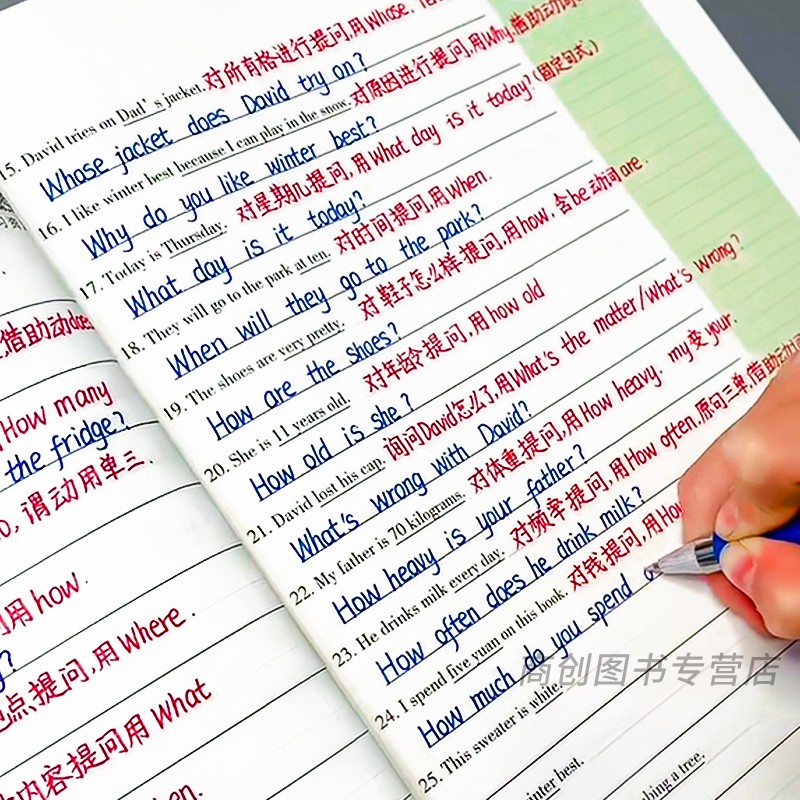 15. David tries on Dad's jacket. 对所有格进行提问,用Whose.
Whose jacket does David try on?
16. I like winter best because I can play in the snow. 对原因进行提问,用Why.借助动词
Why do you like winter best?
17. Today is Thursday. 对星期几提问,用What day is it today?(固定句式)
What day is it today?
18. They will go to the park at ten. 对时间提问,用When.
When will they go to the park?
19. The shoes are very pretty. 对鞋子怎么样提问,用how,含be动词are.
How are the shoes?
20. She is 11 years old. 对年龄提问,用how old
How old is she?
21. David lost his cap. 询问David怎么了,用What's the matter/What's wrong?
What's wrong with David?
22. My father is 70 kilograms. 对体重提问,用How heavy. my变your.
How heavy is your father?
23. He drinks milk every day. 对频率提问,用How often,原句三单,借助动词
How often does he drink milk?
24. I spend five yuan on this book. 对钱提问,用How
How much do you spend o
25. This sweater is white.
winter best.
a tree.
借助动does
How many
the fridge?
谓动用单三.
用how.
点提问,用Where.
内容提问用What
商创图书专营店